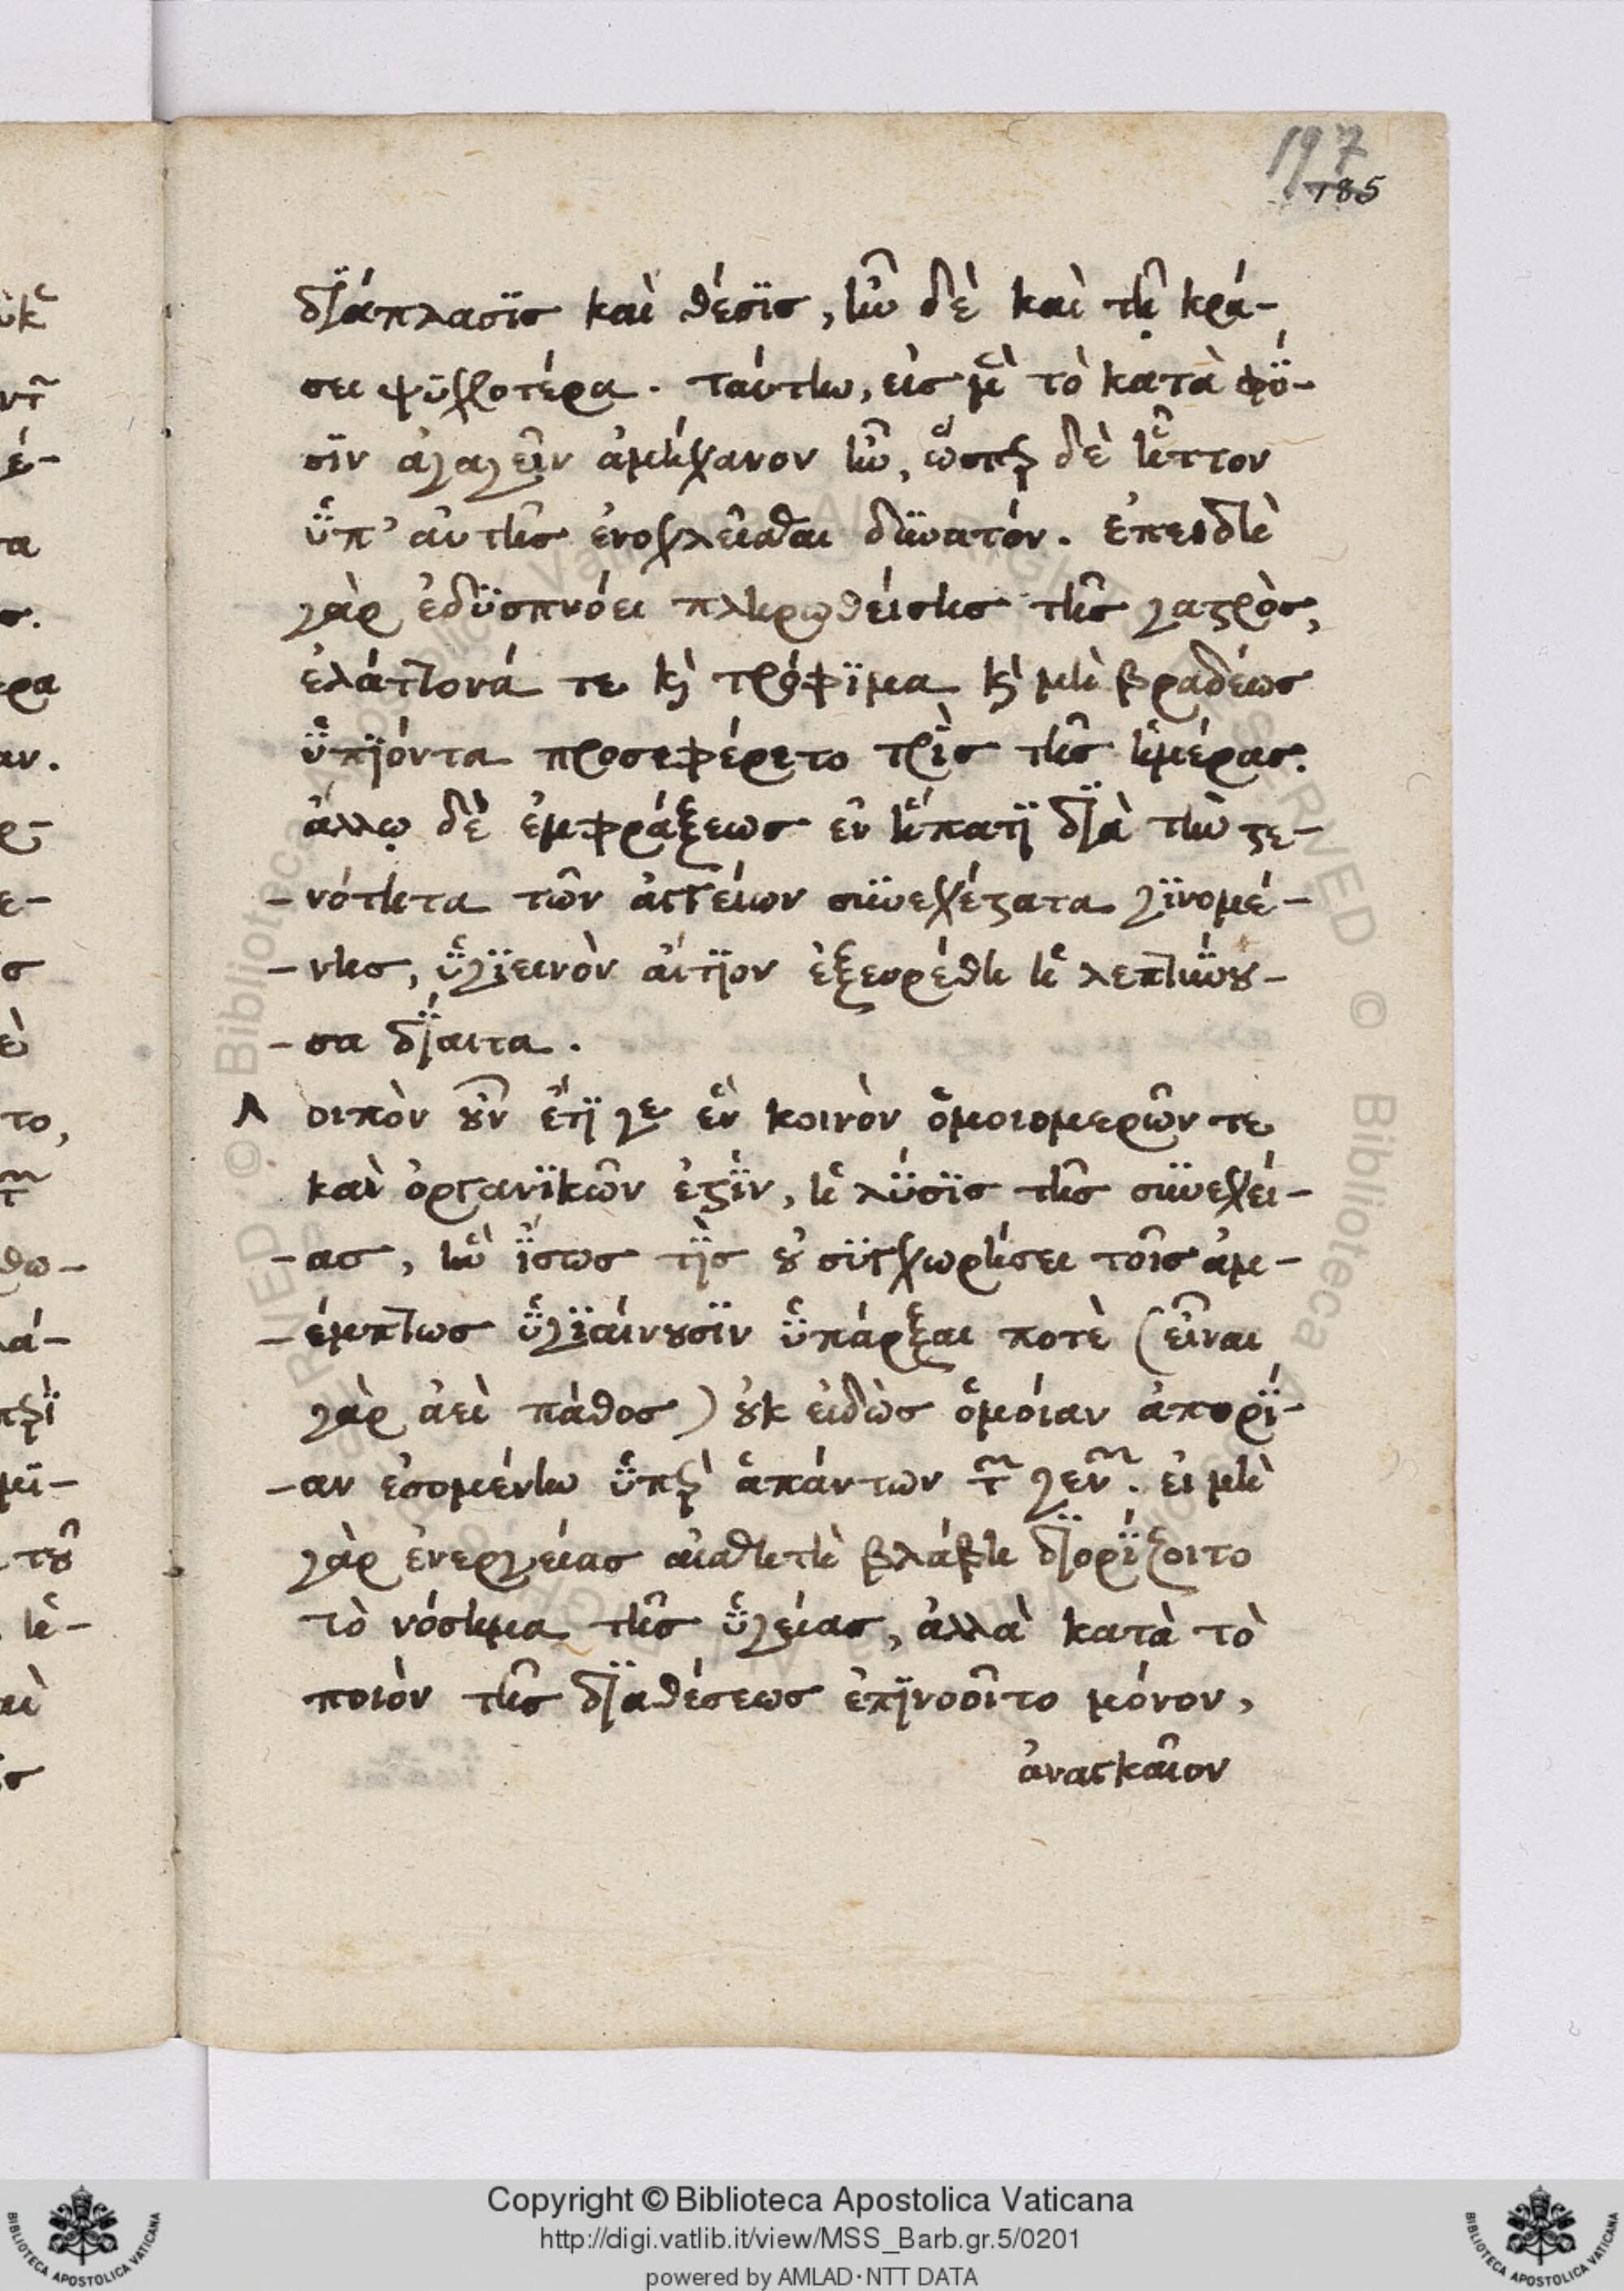 197
185
διάπλασϊς καὶ θέσϊς, ἦν δὲ καὶ τῇ κρά-
σει ψυχροτέρα. ταύτην, εἰς μὲν τὸ κατὰ φύ-
σϊν ἀγαγεῖν ἀμήχανον ἦν, ὥσπερ δὲ ἧττον
ὑπ' αὐτῆς ἐνοχλεῖσθαι δυνατόν. ἐπειδὴ
γὰρ ἐδυσπνόει πληρωθείσης τῆς γαστρὸς,
ἐλάττονά τε καὶ τρόφϊμα καὶ μὴ βραδέως
ὑπϊόντα προσεφέρετο τρὶς τῆς ἡμέρας.
ἄλλῳ δὲ ἐμφράξεως ἐν ἥπατϊ διὰ τὴν στε-
-νότητα τῶν ἀγγείων συνεχέστατα γϊνομέ-
-νης, ὑγϊεινὸν αἴτϊον ἐξευρέθη ἡ λεπτύνου-
-σα δίαιτα.
Λοιπὸν οὖν ἔτϊ γε ἓν κοινὸν ὁμοιομερῶν τε
καὶ ὀργανϊκῶν ἐστϊν, ἡ λύσϊς τῆς συνεχεί-
-ας, ἣν ἴσως τὶς οὐ συγχωρήσει τοῖς ἀμ-
-έμπτως ὑγϊαίνουσϊν ὑπάρξαι ποτὲ (εἶναι
γὰρ ἀεὶ πάθος) οὐκ εἰδὼς ὁμοίαν ἀπορί-
-αν ἐσομένην ὑπὲρ ἁπάντων τῶν γενῶν. εἰ μὴ
γὰρ ἐνεργείας αἰσθητὴ βλάβη διορίζοιτο
τὸ νόσημα τῆς ὑγείας, ἀλλὰ κατὰ τὸ
ποιὸν τῆς διαθέσεως ἐπϊνοοῖτο μόνον,
ἀναγκαῖον
Copyright © Biblioteca Apostolica Vaticana
http://digi.vatlib.it/view/MSS_Barb.gr.5/0201
powered by AMLAD·NTT DATA